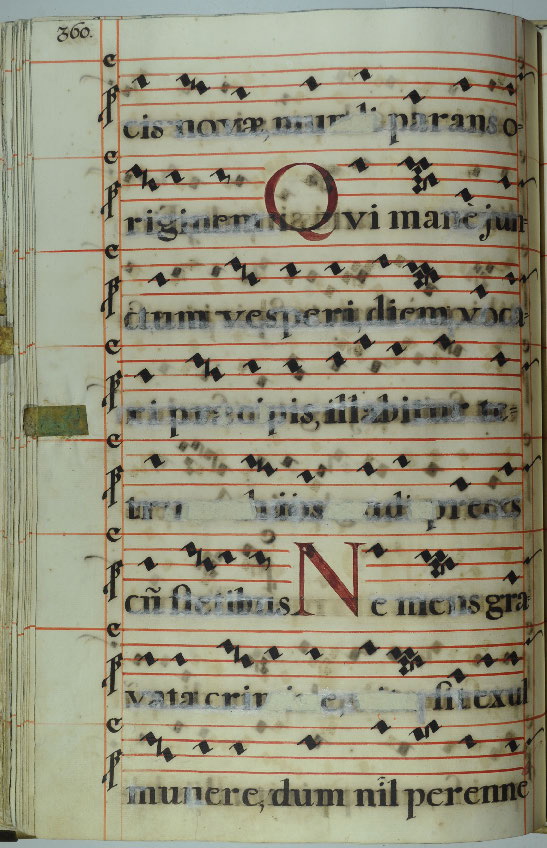 360.
cis novæ, mundi parans o-
riginem Qvi manè jun-
ctum vesperi, diem voca-
ri præcipis, illabitur te-
audi preces
cū fletibus Ne mens gra-
vata crimi exul
munere, dum nīl perenne